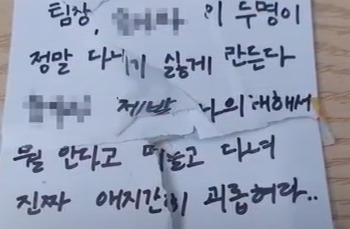 팀장, 이 두명이
정말 다니기 싫게 만든다
제발 나의 대해서
뭘 안다고 떠들고 다녀
진짜 애지간히 괴롭혀라..